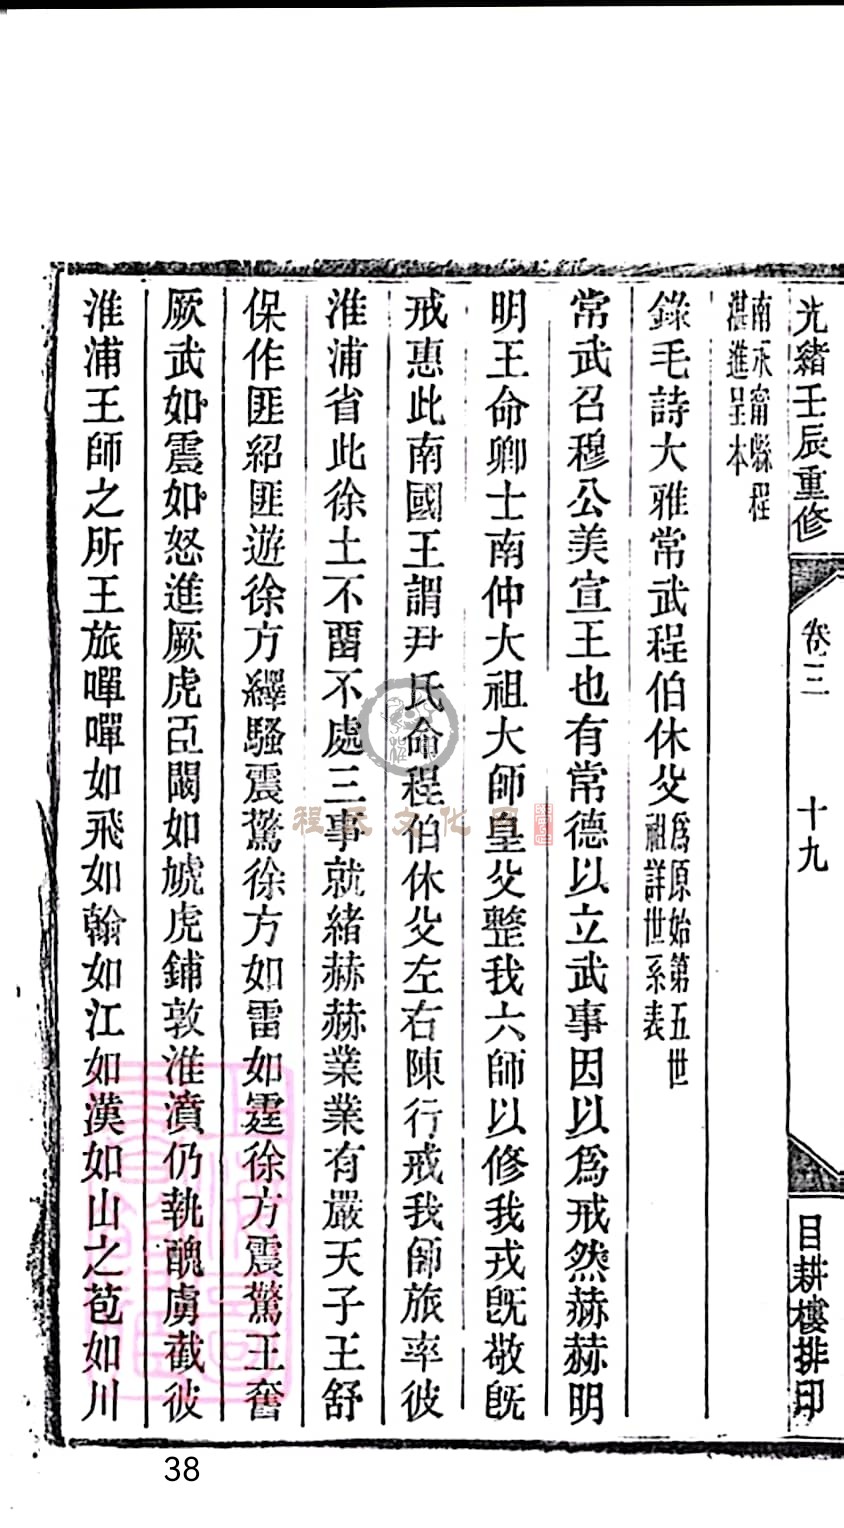 光緒壬辰重修
卷三
十九
目耕樓排印
南永甯縣程
湛進呈本
錄毛詩大雅常武程伯休父爲原始第五世
祖詳世系表
常武召穆公美宣王也有常德以立武事因以爲戒然赫赫明
明王命卿士南仲大祖大師皇父整我六師以修我戎旣敬旣
戒惠此南國王謂尹氏命程伯休父左右陳行戒我師旅率彼
淮浦省此徐土不畱不處三事就緖赫赫業業有嚴天子王舒
保作匪紹匪遊徐方繹騷震驚徐方如雷如霆徐方震驚王奮
厥武如震如怒進厥虎臣闞如虓虎鋪敦淮濆仍執醜虜截彼
淮浦王師之所王旅嘽嘽如飛如翰如江如漢如山之苞如川
程氏文化网
38